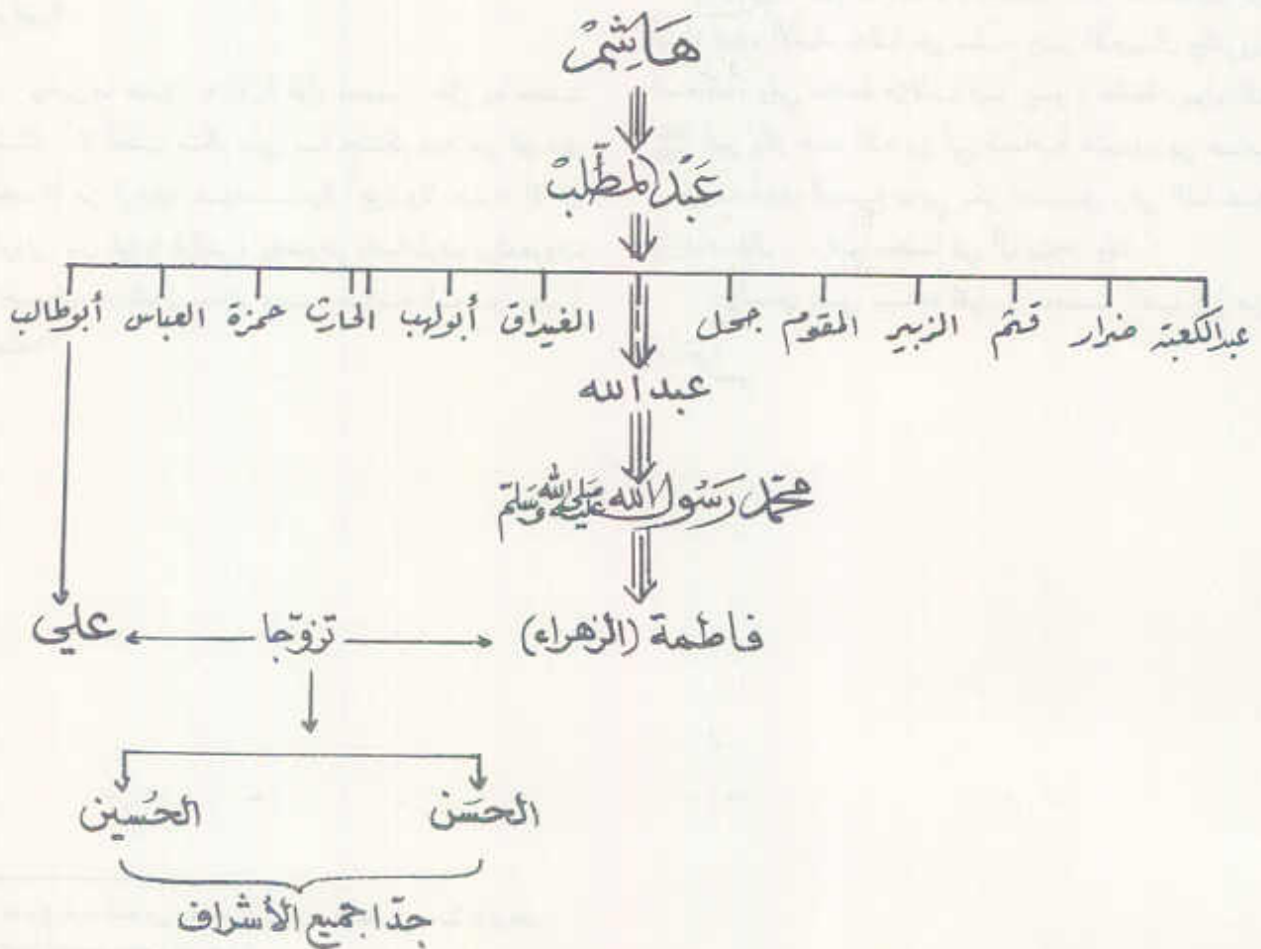 هَاشِمْ
عَبْدالمطَّلِبْ
عبدالكعبة ضرار قثم الزبير المقوم جحل الغيداق أبولهب الحارث حمزة العباس أبوطالب
عبدالله
محمّد رَسُول الله صَلى الله عَليْه وَسَلم
فاطمة (الزهراء) تزوّجا علي
الحسَن الحُسين
جدّا جميع الأشراف